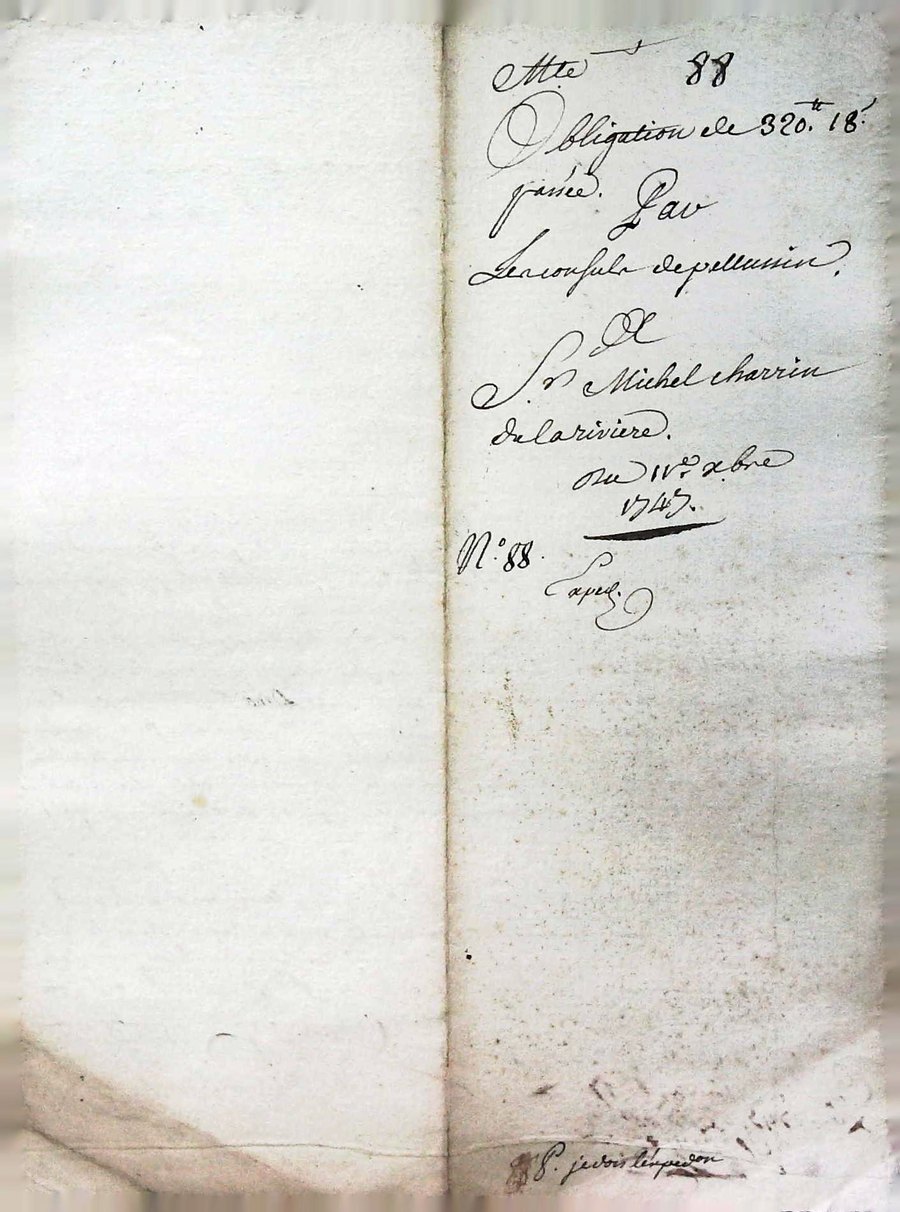 Mte 88
Obligation de 320.tt 18.s
passée. Par
Les consuls de pellussin.
A
S.r Michel charrin
de la riviere.
du 11.e xbre
1747.
N.o 88.
Exped.
P. je dois l'expedon